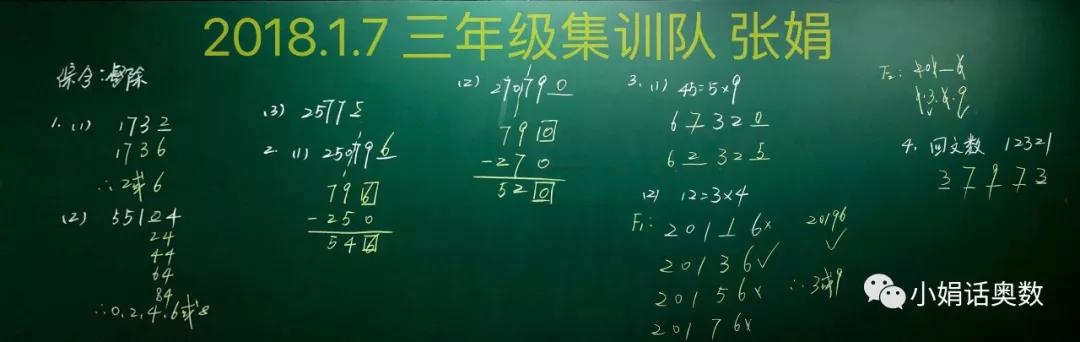 2018.1.7 三年级集训队 张娟
综合:整除
1. (1) 1732
1736
∴2或6
(2) 55124
24
44
64
84
∴0.2.4.6或8
(3) 25775
2. (1) 250796
796
-250
546
(2) 270790
790
-270
520
3. (1) 45=5×9
67320
62325
(2) 12=3×4
F₁: 20116×
20136√
20156×
20176×
20196
√
∴3或9
F₂:
4. 回文数 12321
37973
小娟话奥数